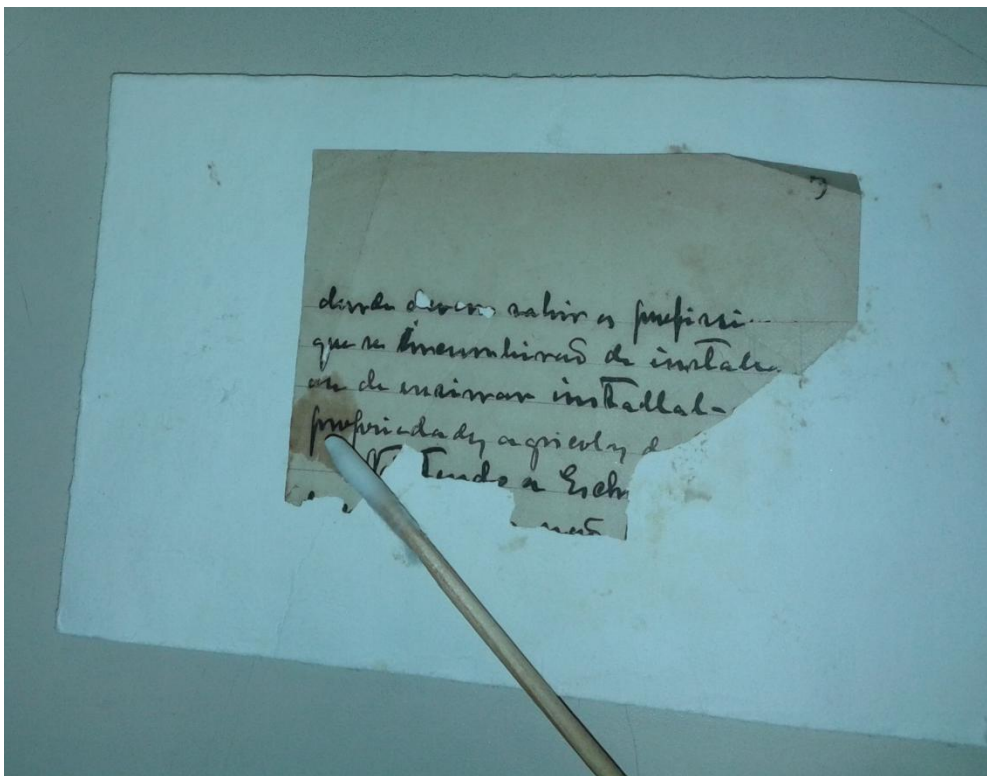 3
donde devem sahir os profissi
que se incumbirão de instala
ou de ensinar installal-
propriedades agricolas d
tendo a Esch
não